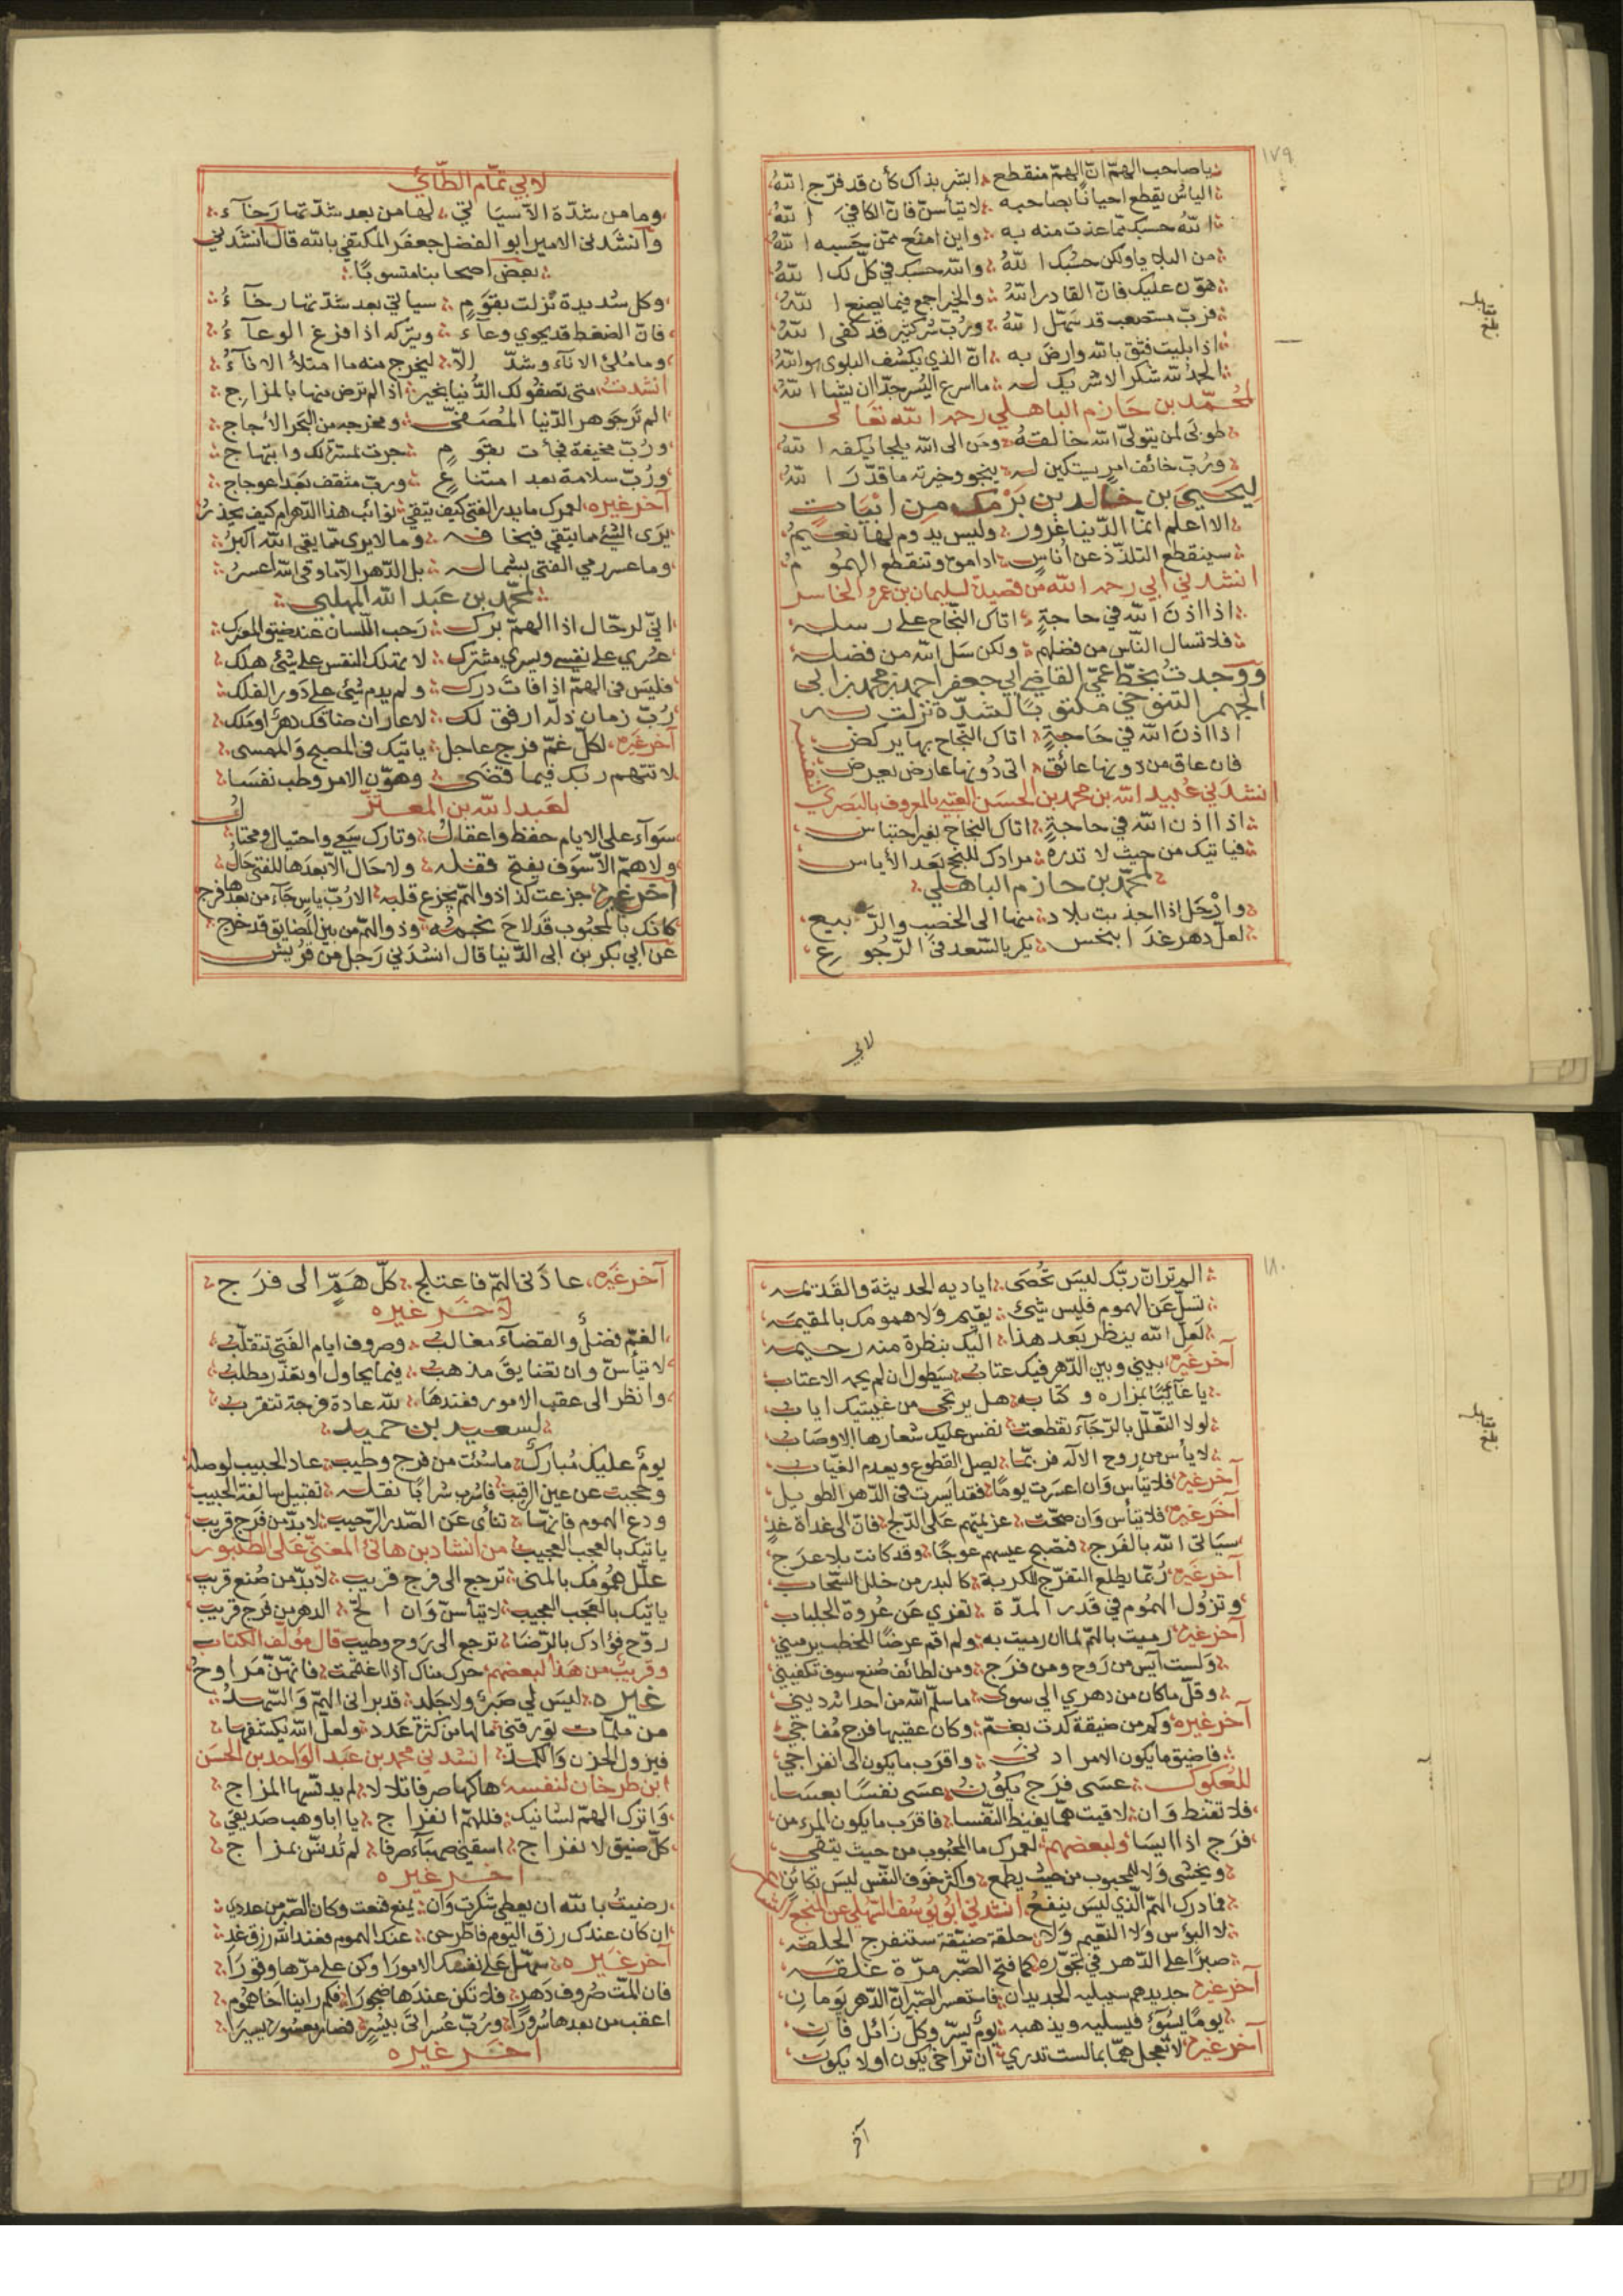 ١٧٩
يا صاحب الهمّ انّ الهمّ منقطع ابشر بذاك كأن قد فرّج اللهُ
الياسُ يقطع احيانًا بصاحبه لا تيأسنّ فانّ الكافيَ اللهُ
اللهُ حسبك ممّا عذت منه به واين امنع ممّن حسبه اللهُ
من البلايا ولكن حسبك اللهُ والله حسبك في كلّ لك اللهُ
هوّن عليك فانّ القادر اللهُ والخير اجمع فيما يصنع اللهُ
فربّ مستصعب قد سهّل اللهُ وربّ شرّ كثير قد كفى اللهُ
اذا بليت فثق بالله وارضَ به انّ الذي يكشف البلوى هو اللهُ
الحمد لله شكرا لا شريك له ما اسرع اليُسر جدّا ان يشا اللهُ
لمحمّد بن حَازم الباهلي رحمه الله تعَالى
طوبى لمن يتولىّ الله خالقهُ ومن الى الله يلجا يكفه اللهُ
وربّ خائف امر يستكين له ينجو وخيرته ما قدّرَ اللهُ
ليحيىَ بن خَالد بن بَرْمك من ابيَات
الا اعلم انمّا الدّنيا غرور وليس يدوم لها نعيمُ
سينقطع التلذّذ عن اُناسٍ اداموه وتنقطع الهمُومُ
انشدني ابي رحمه الله من قصيدة لسليمان بن عمرو الخاسر
اذا اذنَ الله في حاجةٍ اتاك النّجاح على رسله
فلا تسال النّاس من فضلهم ولكن سَل الله من فضله
ووجدتُ بخطّ عميّ القاضي ابي جعفر احمد بن محمد بن ابي
الجهم التنوخي مكتوبًا لشدّة نزلت به
اذا اذنَ الله في حَاجةٍ اتاك النّجاح بها يركض
فان عاق من دونها عائق اتى دُونها عارض يعرض
انشدني عُبيد الله بن محمد بن الحسَن العبقسي المعروف بالبَصَري
اذا اذن الله في حاجةٍ اتاك النجاح بغير احتباس
فياتيك من حيث لا تدره مرادك بالنجح بَعد الأياس
لمحمّد بن حازم الباهلي
وارْحَل اذا اجدبت بلاد منها الى الخصب والرَّبيع
لعلّ دهر غدَا بنحس يكر بالسّعد في الرّجُوعِ
لابي
لابي تمّام الطّائي
وما من شدّة الا سيَاتي لها من بعد شدّتها رَخآء
وانشدنى الامير ابو الفضل جعفر المكتفي بالله قال انشدني
بعض اصحابنا منسوبًا
وكل شديدة نزلت بقومٍ سياتي بعد شدّتها رخآءُ
فانّ الضغط قد يحوي وعآء ويتركه اذا فزغ الوعآءُ
وما مُلئ الانآء وشدّ الّا ليخرج منه ما امتلأ الانآءُ
انشدت متى تصفو لك الدّنيا بخير اذا لم ترض منها بالمزاج
الم تَر جَوهر الدّنيا المُصَفىّ ومخرجه من البَحر الأُجاج
ورُبّ مخيفة فجأت بقَومٍ جرت بمسرّة لك وابتهاج
ورُبّ سلامة بعد امتناعٍ وربّ مثقف بَعد اعوجاج
آخر غيره لعمرك ما يدرِ الفتى كيف يتّقي نوائب هذا الدّهر ام كيف يحذرُ
يرَى الشئ مما يتقي فيخافه وما لا يرى ممّا يقي الله اكبرُ
وما عسر رمي الفتى بشماله بل الدّهر الّا ما وقى الله اعسرُ
لمحمّد بن عَبد الله المهلبي
انيّ لرحّال اذا الهمّ برك رَحب اللّسان عند ضيق المعترك
عسُري على نفسي ويسري مشترك لا تملك النفس على شئ هلك
فليسَ في الهمّ اذا فاتَ درك ولم يدم شئ على دَور الفلك
رُبّ زمان ذلّه ارفق لك لا عار ان ضامَك دهرٌ او مَلك
آخر غيره لكلّ غمّ فرج عاجل ياتيك في المصبح والممسى
لا تتهم ربك فيما قضَى وهوّن الامر وطب نفسَا
لعَبد الله بن المعتزّ
سَوآء على الايام حفظ واغفال وتارك سَعي واحتيال ومحتال
ولا همّ الّا سَوف يفتح قفله ولا حَال الّا بعدَها للفتى حالُ
آخر غيره جزعت كذا ذو الهمّ يجزع قلبه الا رُبّ ياس جَآء من بعدها فرج
كانك بالمحبُوب قد لاحَ نجمُه وذو الهمّ من بين المضايق قد خرج
عَن ابي بكر بن ابى الدّنيا قال انشدَني رَجل من قريش
١٨٠
الم تر انّ ربّك ليسَ تُحْصَى اياديه الحديثة والقَديمه
تسلّ عَن الهموم فليس شئ يقيم ولا همومك بالمقيمه
لعَلّ الله ينظر بَعد هذا اليك بنظرة منه رحيمه
آخر غيره بيني وبين الدّهر فيك عتاب سَيَطول ان لم يمحه الاعتاب
يا غائبًا بمزاره وكتابه هل يرتجى من غيبتيك اياب
لولا التّعلّل بالرّجآء تقطعت نفس عليك شعارها الاوصَاب
لا يأس من روح الاله فربّما يصل القطوع ويقدم الغيّاب
آخر غيره فلا تيأس وَان اعسَرت يومًا فقد ايسَرت في الدّهر الطويل
آخر غيره فلا تيأس وَان صحّت عزيمتهم عَلى الدّلج فانّ الى غداة غدٍ
سيَاتي الله بالفَرج فتصبح عيسهم عوجًا وقد كانت بلا عرَج
آخر غيره رُبّما يطلع التفرّج للكربة كالبدر من خلل السّحاب
وتزوُل الهمُوم في قَدر المدّة تعزي عَن عُروة الجلباب
آخر غيره رُميت بالهمّ لما ان رميت به ولم اقم عرضًا للخطب يرميني
وَلست آيس من رَوح ومن فرَج ومن لطائف صُنع سوف تكفيني
وقلّ ما كان من دهري الي سوى ما سلّم الله من احداثه ديني
آخر غيره وكم من ضيقة كدت بغمّ وكان عقيبها فرج مُفاجي
فاضيق ما يكون الامر ادنَى واقرَب ما يكون الى انفراجي
للعكوك عسَى فرَج يكوُنُ عسَى نفسًا بعسَى
فلا تقنط وَان لاقيت همّا يغيظ النّفسا فاقرَب ما يكون المرء من
فرَج اذا ايسَا ولبعضهم لعمرك ما المحبُوب من حيث يتّقي
ويخشى وَلا المحبوب من حيث يطمع واكثر خوَف النّفس ليسَ بكائنٍ
فما درك الهمّ الّذي ليسَ ينفعُ انشدني ابُو يوسُف التهلي عن المنجع
لا البؤس وَلا النّعيم وَلا حلقة ضيّقة ستنفرج الحلقه
صبرًا على الدّهر في تجوّره كما فتح الصّبر مرّة غلقه
آخر غيره جديد همّ سيبليه الجديدان فاستعسر الصّبر انّ الدّهر يوَمانِ
يومًا يسُوئ فيسليه ويذهبه يومٌ يسرّ وكلّ زائل فان
آخر غيره لا تعجل همّا بما لست تدري ان تراخى يكون او لا يكون
آخر
آخر غيره عاذَنى الهمّ فاعتلج كلّ همٍّ الى فرَج
لآخَر غيره
الغمّ فضلٌ والقضآء مغالب وصروف ايام الفَتى تتقلّبُ
لا تيأسنّ وان تضايقَ مذهبُ فيما يحاول او تعذّر مطلبُ
وانظر الى عقب الامور فعندهَا لله عادة فرجة تتقربُ
لسعيد بن حميد
يومٌ عليك مُبارك ما شئت من فرح وطيب عاد الحبيب لوصله
وحجبت عن عين الرقيب فاشرب شرابًا نقله تقبيل سالفة الحبيب
ودع الهموم فانّها تنأى عَن الصّدر الرّحيب لابدّ من فرَج قريب
ياتيك بالعجب العجيب من انشاد بن هانئ المغنيّ عَلى الطنبور
علّل همُومك بالمنى ترجع الى فرج قريب لابدّ من صُنع قريب
ياتيك بالعجَب العجيب لا تيأسنّ وَان الحّ الدهر من فَرج قريب
روّح فؤادك بالرّضَا ترجع الى رَوح وطيب قال مؤلّف الكتاب
وقريبٌ من هَذا لبعضهم حرك مناك اذا اغتممت فانهّنّ مَراوحُ
غيره ليسَ لي صَبرٌ ولا جَلد قد برانى الهمّ وَالسّهدُ
من ملمّات تؤرقني مالها من كثرة عَدد ولعلّ الله يكشفها
فيزول الحزن وَالكمد انشدني محمد بن عبد الوَاحد بن الحسَن
ابن طرخان لنفسه هاكها صرفا تلالا لم يدنّسها المزاج
وَاترك الهمّ لشانيك فللهمّ انفراج يا ابا وهب صَديقي
كلّ ضيق لانفراج اسقني صهبآء صرفا لم تُدنّس بمزاج
اخَر غيره
رضيتُ بالله ان يعطي شكرت وَان يمنع قنعت وكان الصّبر من عددي
ان كان عندك رزق اليوم فاطرحن عنك الهموم فعند الله رزق غدِ
آخر غَيره سهّل عَلى نفسك الامورَا وكن على مرّها وقورَا
فان المّت صُروف دَهرٍ فلا تكن عندَها ضجورَا فكم راينا اخا هموُم
اعقب من بعدها سُرورًا ورُبّ عُسر اتَى بيُسرٍ فصار معسُوره يسيرَا
اخَر غيره